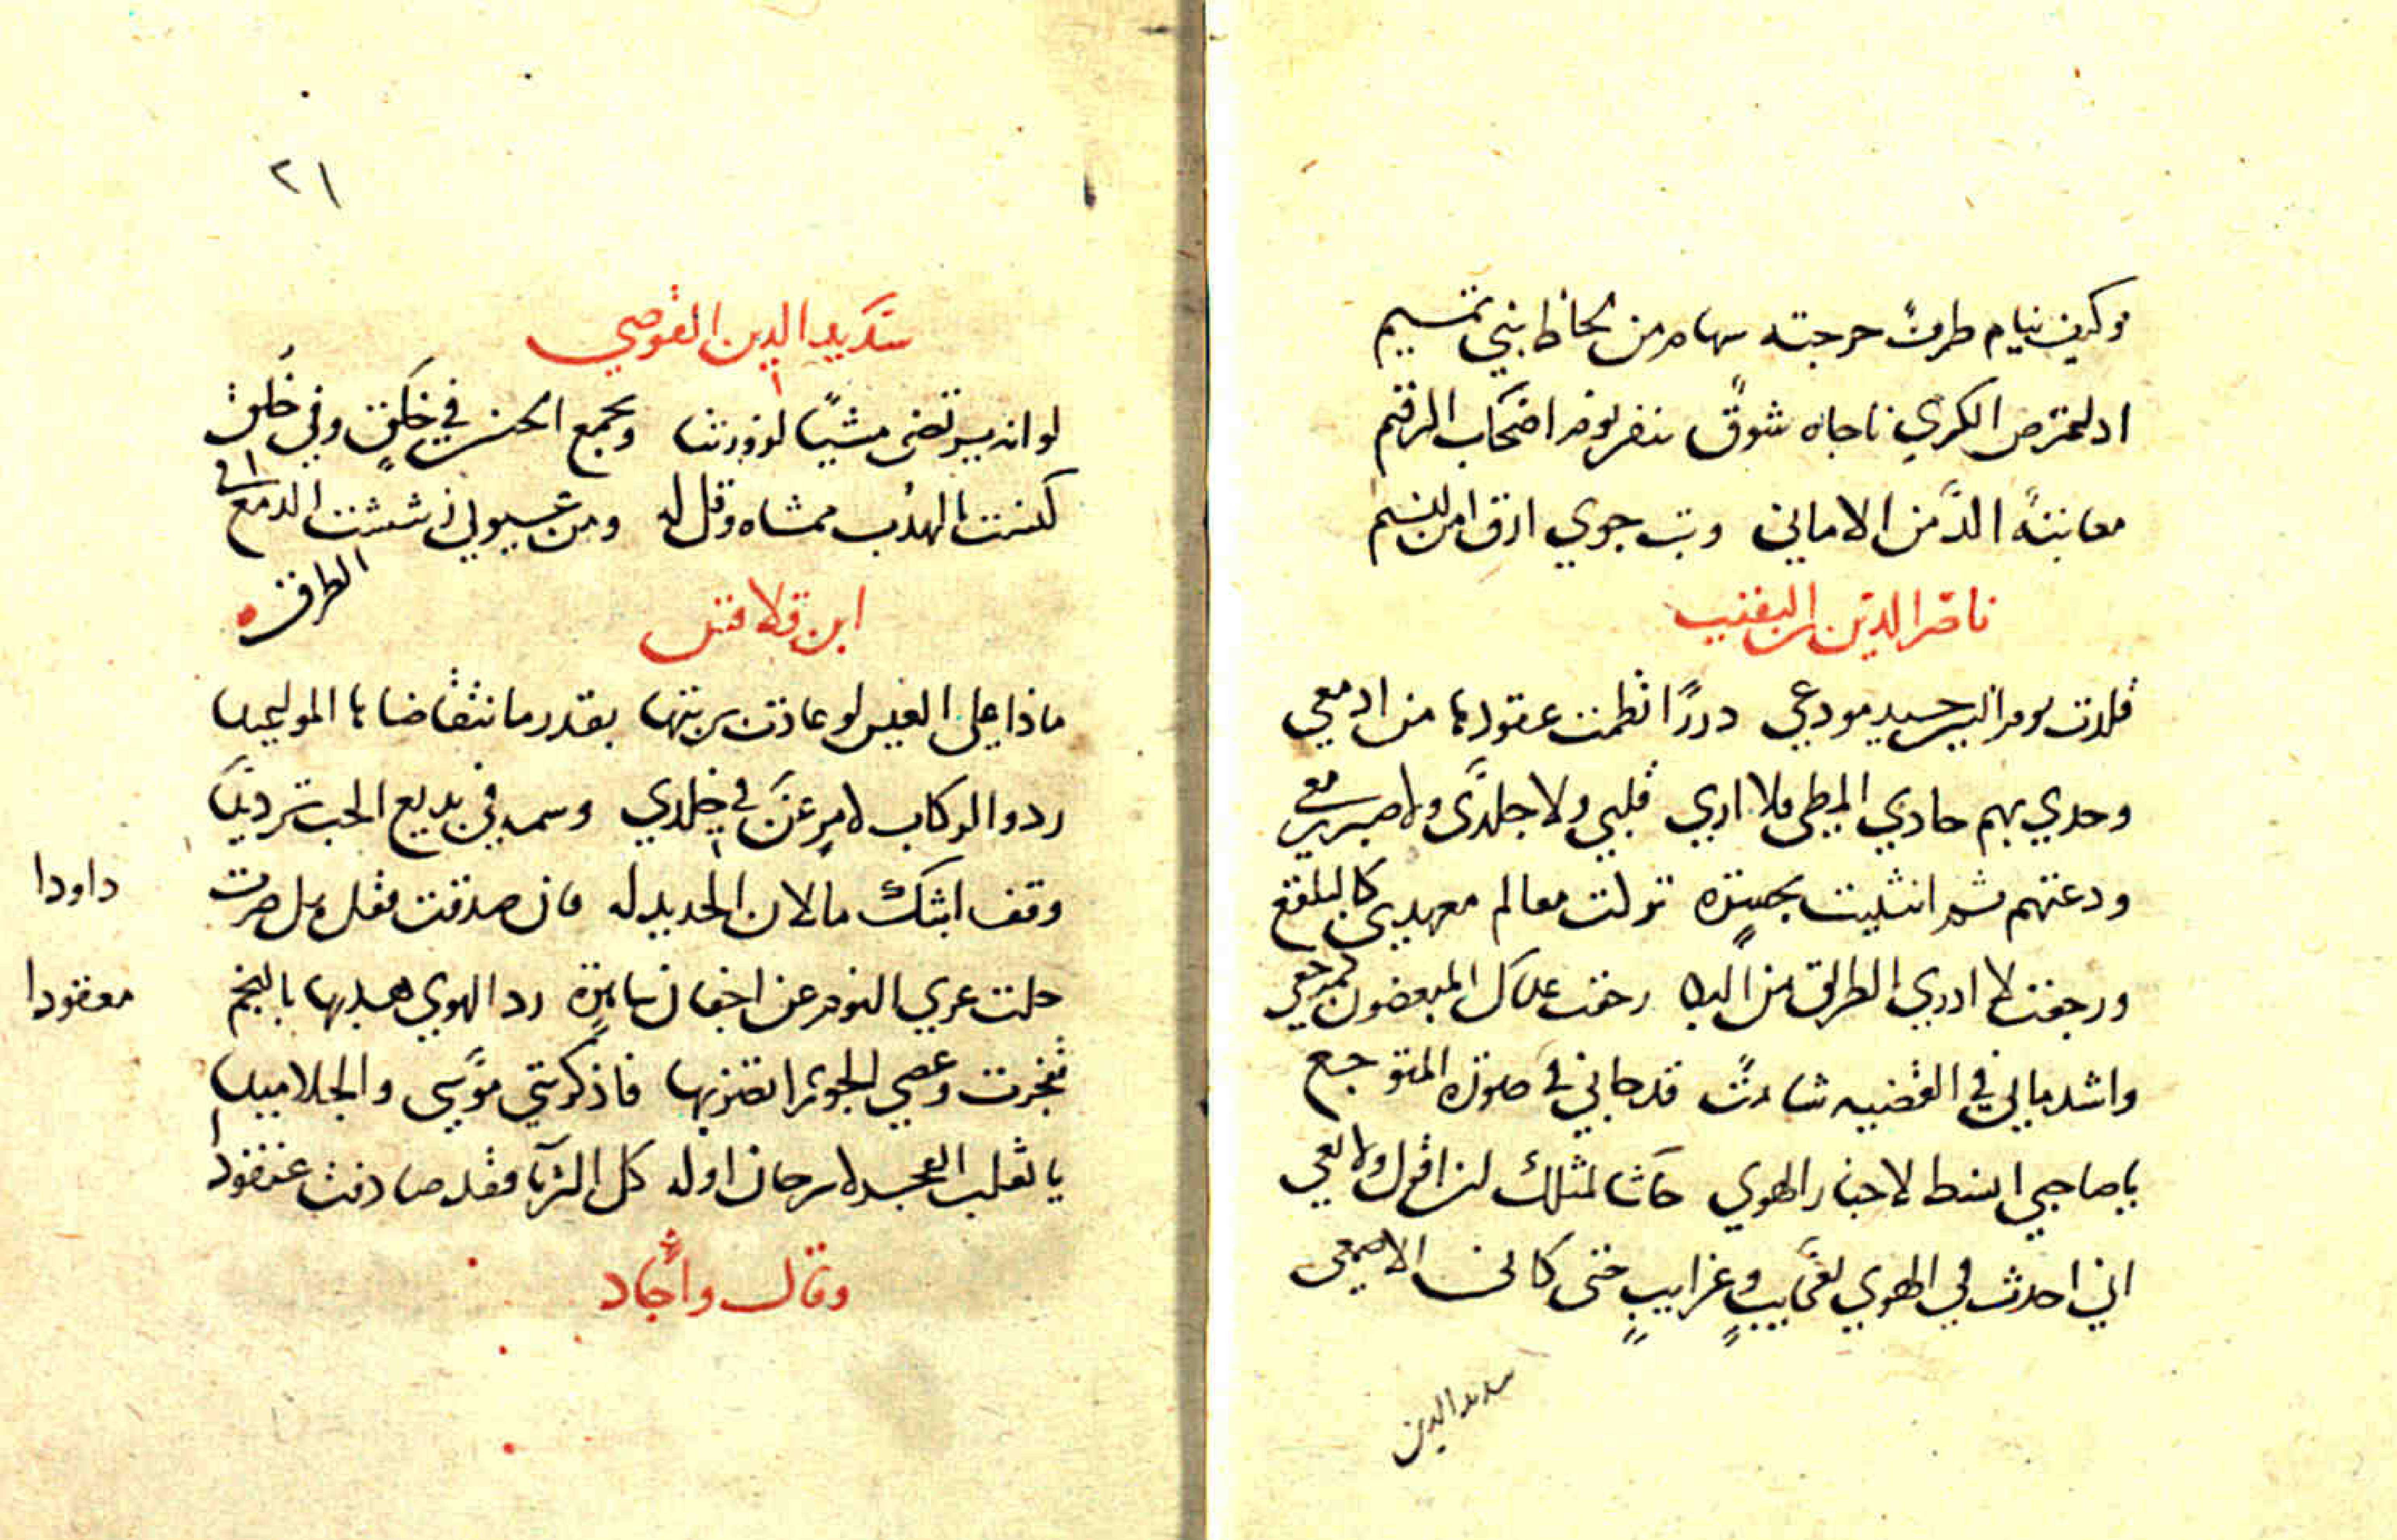 وكيف ينام طرف جرحته سهام من لحاظ بني تميم
الكري ناجاه شوق اصحاب الرقيم
معانيه الذ من الاماني وبت جوي ارق من النسيم
ناصر الدين بن النقيب
قلدت يوم البين جيد مودعي دررا نظمت عقودها من ادمعي
وحدي بهم حادي المطي فلا اري قلبي ولا جلدي ولا صبري معي
ودعتهم ثم انثنيت بحسرة تركت معالم معهدي كالبلقع
ورجعت لا ادري الطريق من البكا رجعت عداك المبغضون كمرجعي
واشد مالي في القضيه شامت قد جاني في صورة المتوجع
يا صاحبي انشط لاخبار الهوي حاشا لمثلك ان اقول ولا يعي
اني احدث في الهوي بعجايب وغرايب حتى كاني الاصمعي
سديد الدين
٢١
سديد الدين القوصي
لو انه يرتضى مشيا لزورتنا ويجمع الحسن في خلق وفي خلق
لكنست بالهدب ممشاه وقل له ومن عيوني رششت الدمع في
الطرق
ابن قلاقس
ماذا على العيس لو عادت بربتها بقدر ما نتقاضاها المواعيدا
ردوا الركاب لامر عن في خلدي وسمه في بديع الحب ترديدا
وقف ابثك ما لان الحديد له فان صدقت فقل هل صرت
داودا
حلت عري النوم عن اجفان ساهرة رد الهوي هدبها بالنجم
معقودا
تفجرت وعصي الجوزا تضربها فاذكرتني موسى والجلاميدا
يا ثعلب الفجر لا سرحان اوله كل الثريا فقد صادفت عنقودا
وقال واجاد